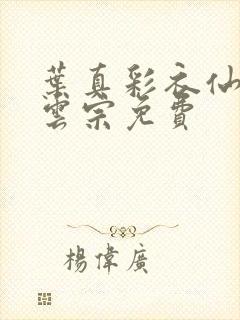 葉真彩衣仙
雲宗免費
楊偉廣